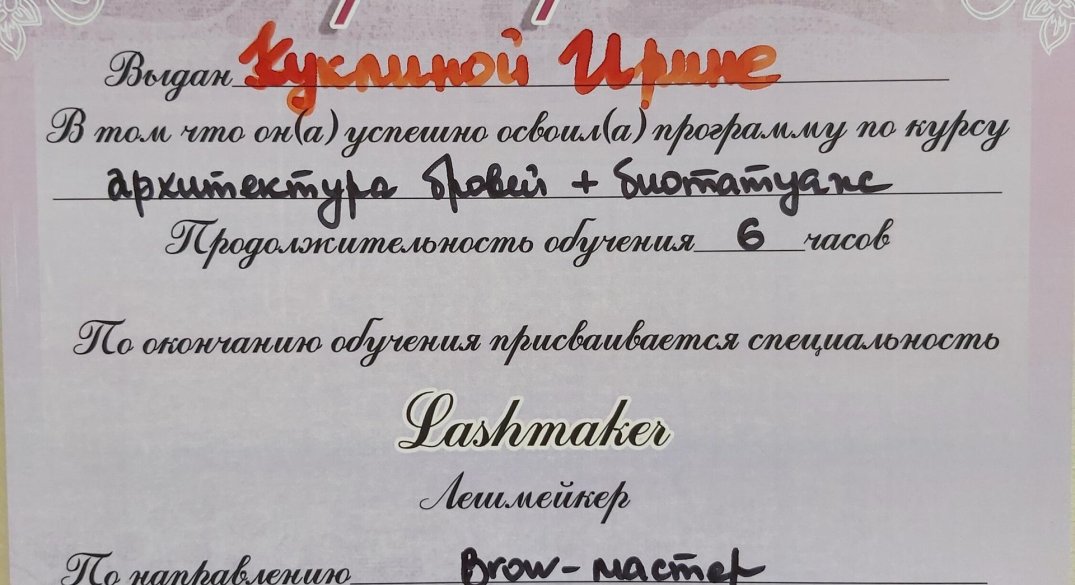 Выдан Куклиной Ирине
В том что он(а) успешно освоил(а) программу по курсу
архитектура бровей + биотатуаж
Продолжительность обучения 6 часов
По окончанию обучения присваивается специальность
Lashmaker
Лешмейкер
По направлению Brow-мастер